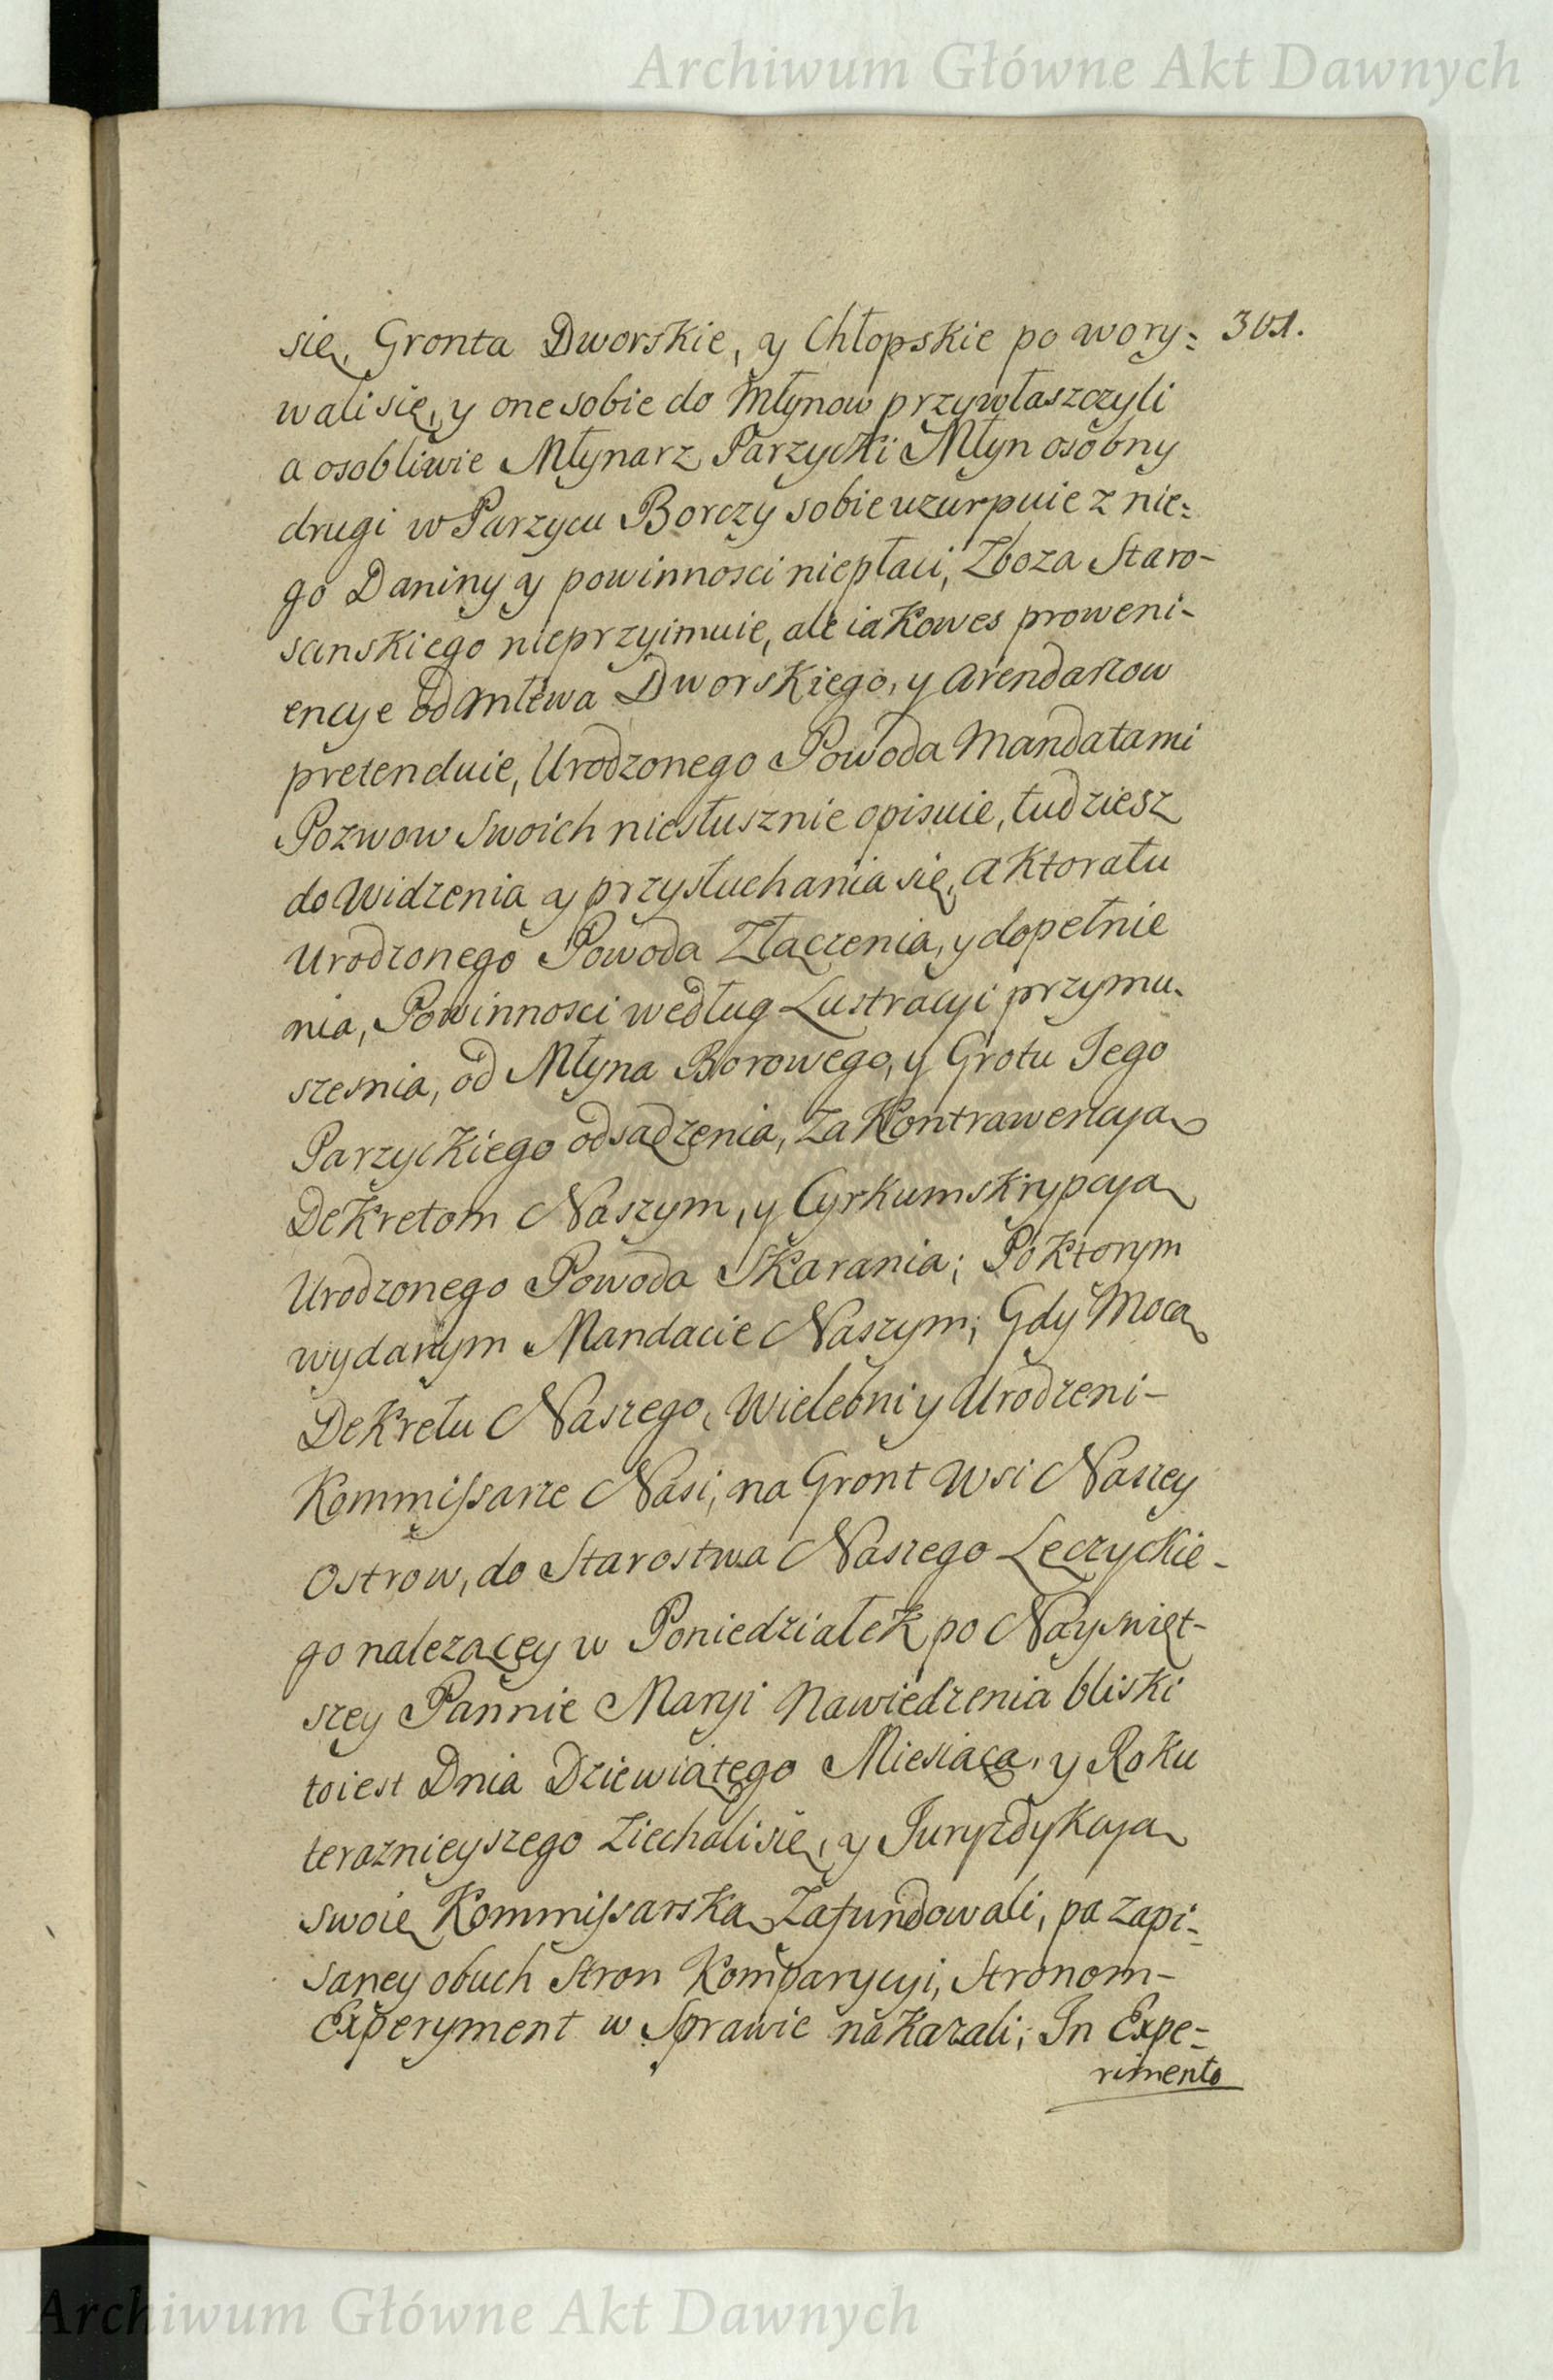 Archiwum Główne Akt Dawnych
się, Gronta Dworskie, y Chłopskie po wory= 301.
wali się, y one sobie do Młynow przywłaszczyli
a osobliwie Młynarz Parzycki Młyn osobny
drugi w Parzycu Borczy sobie uzurpuie z nie=
go Daniny y powinnosci niepłaci, Zboza Staro-
scinskiego nieprzyimuie, ale iakowes proweni-
encye od Mlewa Dworskiego, y Arendarzow
pretenduie, Urodzonego Powoda Mandatami
Pozwow Swoich niesłusznie opisuie, tudziesz
do Widzenia y przysłuchania się, Aktoratu
Urodzonego Powoda Złączenia, y dopełnie
nia, Powinnosci według Lustracyi przymu-
szenia, od Młyna Borowego, y Grotu Jego
Parzyckiego odsądzenia, za Kontrawencyą
Dekretom Naszym, y Cyrkumskrypcyą
Urodzonego Powoda Skarania; Po Ktorym
wydanym Mandacie Naszym; Gdy Mocą
Dekretu Naszego, Wielebni y Urodzeni-
Kommissarze Nasi, na Gront Wsi Naszey
Ostrow, do Starostwa Naszego Łęczyckie-
go nalezącey w Poniedziałek po Nayswięt-
szey Pannie Maryi Nawiedzenia bliski
to iest Dnia Dziewiątego Miesiąca, y Roku
teraznieyszego Ziechali się, y Juryzdykcyą
swoię Kommissarską Zafundowali, po zapi-
saney obuch Stron Komparycyi, Stronom-
Experyment w Sprawie nakazali; In Expe=
rimento
Archiwum Główne Akt Dawnych